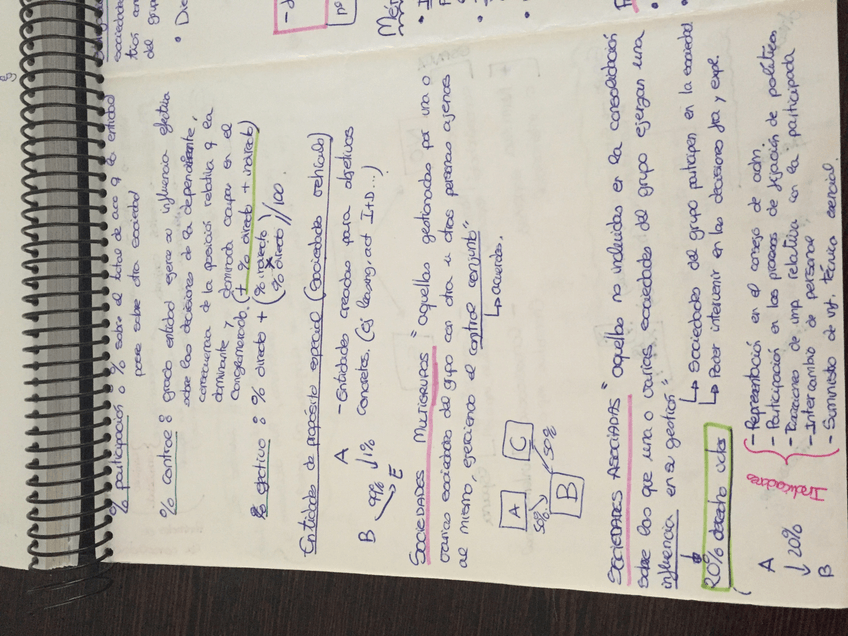 % participación : % sobre el total de acc q la entidad
posee sobre otra sociedad
% control : grado entidad ejerce su influencia efectiva
sobre las decisiones de la dependiente,
consecuencia de la posición relativa q la
dominante y dominada ocupan en el
conglomerado. (+ % directo + indirecto)
% efectivo : % directo + (% indirecto x % directo)/100
Entidades de propósito especial (sociedades vehículo)
A
B 99% ↓1%
E
- Entidades creadas para objetivos
concretos. (ej leasing, act I+D...)
SOCIEDADES MULTIGRUPO: "aquellas gestionadas por una o
varias sociedades del grupo con otra u otras personas ajenas
al mismo, ejerciendo el control conjunto"
↳ Acuerdos.
A
C
50%
50%
B
SOCIEDADES ASOCIADAS "aquellas no incluidas en la consolidación
sobre las que una o varias sociedades del grupo ejerzan una
influencia en su gestión"
↳ Sociedades del grupo participen en la sociedad
↳ Poder intervenir en las decisiones fra y expl.
20% derecho votos
A
↓ 20%
B
Indicadores
- Representación en el consejo de adm.
- Participación en los procesos de fijación de políticas
- Transacciones de imp relativa con la participada
- Intercambio de personal
- Suministro de inf. técnica esencial.
sociedades
del grupo